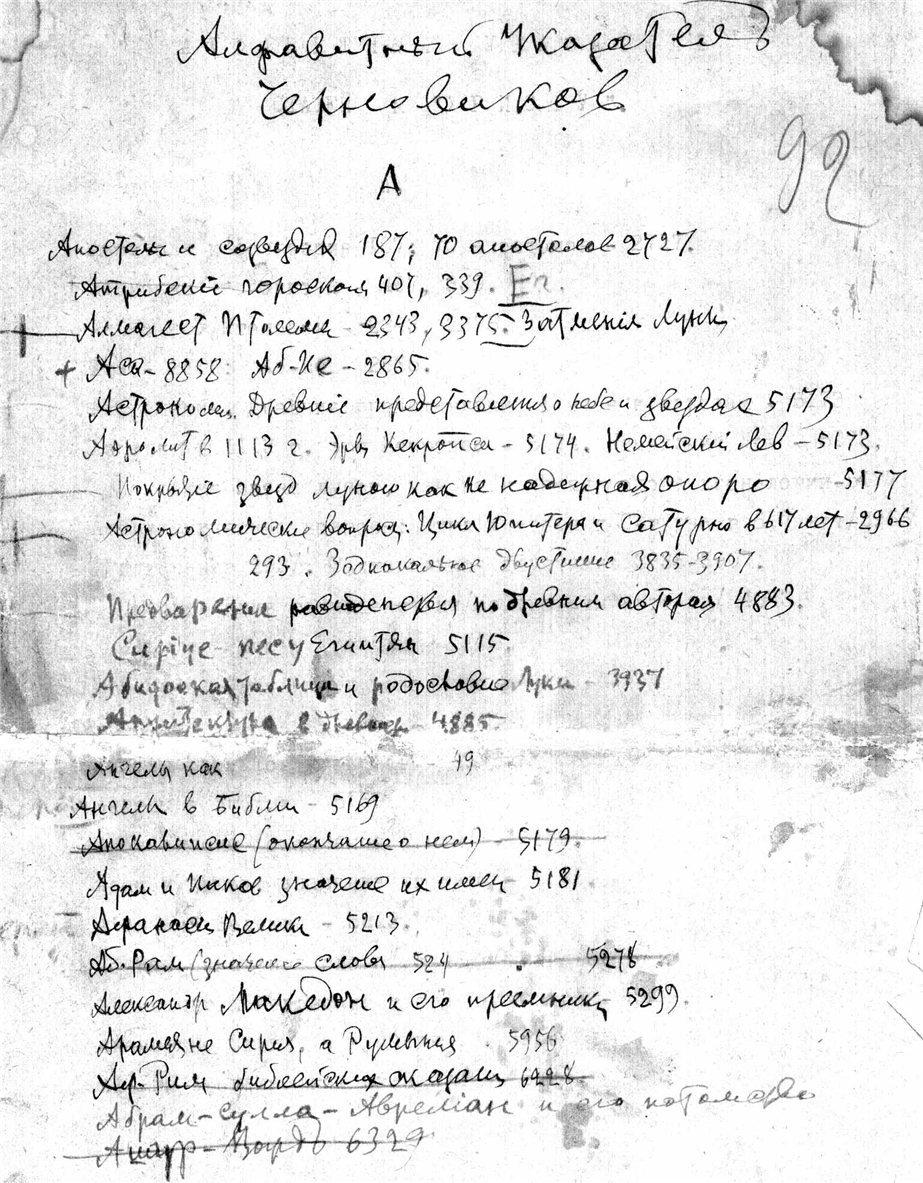 Алфавитный Указатель
Черновиков
92
А
Апостолы и созвездия 187; 70 апостолов 2727.
гороскоп 407, 339. Ег.
Алмагест Птолемея - 2343, 3375. Затменія Луны
+ Аса - 8858. Аб-Ие - 2865.
Астрономия. Древніе представления о небе и звездах 5173
Аэролит в 1113 г. Эра Кекропса - 5174. Немейскій Лев - 5173.
Покрытіе звезд луною как не надежная опора - 5177
Астрономические вопросы: Цикл Юпитера и Сатурна в 617 лет - 2966
293. 3835-3907.
Предварения равноденствия по древним авторам 4883.
Египтян 5115
Абидосская таблица и родословие Луки - 3937
Архитектура в - 4885
Ангелы как 49
Ангелы в Библии - 5169
Апокалипсис (окончание о нем) - 5179.
Адам и Иаков значение их имен 5181.
Афанасий Велик - 5213.
Аб-Рам (значение слова 524 5278
Александр Македон и его преемники 5299.
Арамеяне Сирия, а Румыния 5956
библейских 6228
Абрам - Сулла - Авреліан и его потомство
6329